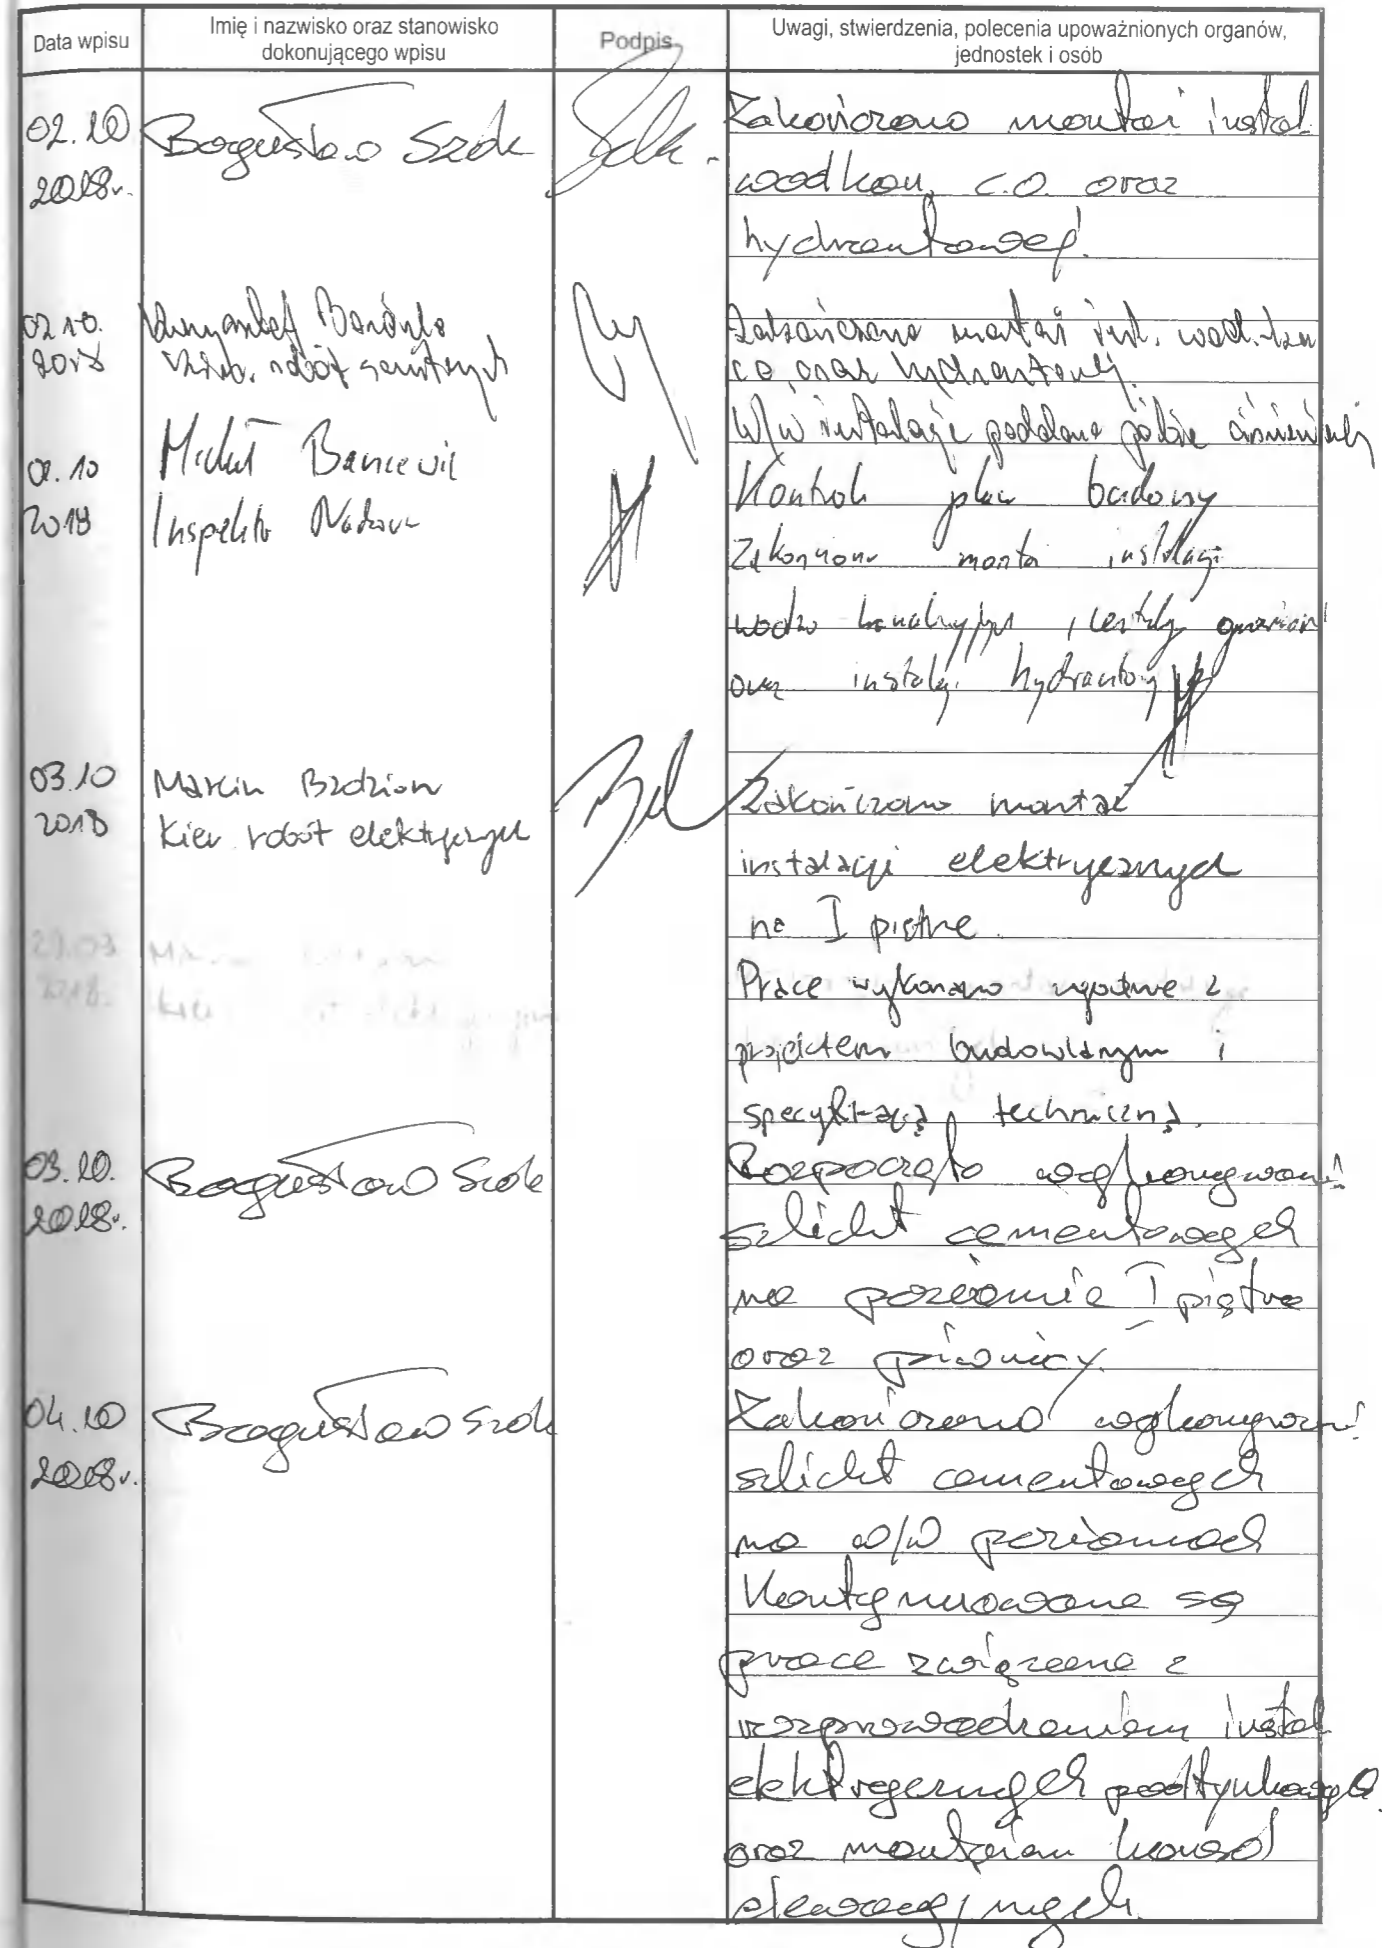 Data wpisu
Imię i nazwisko oraz stanowisko
dokonującego wpisu
Podpis
Uwagi, stwierdzenia, polecenia upoważnionych organów,
jednostek i osób
02.10
2018r.
Bogusław Szok
Zakończono montaż instal.
wodkan, c.o. oraz
hydrantowej.
02.10.
2018
robót sanitarnych
Zakończono montaż inst. wod.-kan
co, oraz hydrantowej.
W/w instalacje poddano próbie ciśnieniowej
02.10
2018
Michał Bancewic
Inspektor Nadzoru
Kontrola placu budowy
Zakończono montaż instalacji
wodno kanalizacyjnej, centralnego
oraz instalacji hydrantowej
03.10
2018
Marcin Bzdzion
Kier. robót elektrycznych
Zakończono montaż
instalacji elektrycznych
na I piętrze.
Prace wykonano zgodnie z
projektem budowlanym i
specyfikacją techniczną.
03.10.
2018r.
Bogusław Szok
Rozpoczęto wykonywanie
szlicht cementowych
na poziomie I piętra
oraz piwnicy.
04.10
2018r.
Bogusław Szok
Zakończono wykonywanie
szlicht cementowych
na w/w poziomach
Kontynuowane są
prace związane z
rozprowadzeniem instal.
elektrycznych podtynkowych
oraz montażem konsol
elewacyjnych.